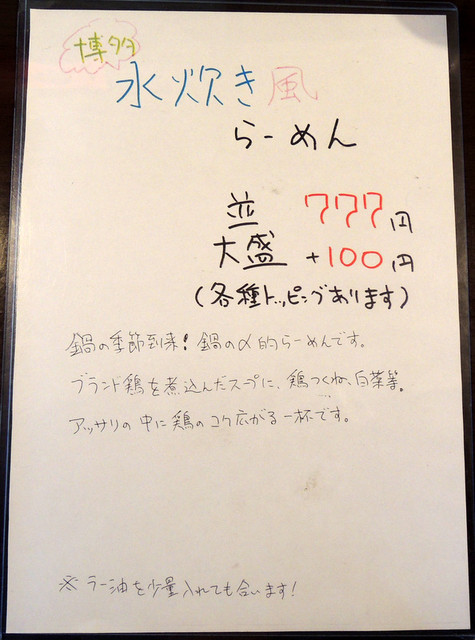 博多
水炊き風
らーめん
並 777円
大盛 +100円
(各種トッピングあります)
鍋の季節到来!鍋の〆的らーめんです。
ブランド鶏を煮込んだスープに、鶏つくね、白菜等。
アッサリの中に鶏のコク広がる一杯です。
※ラー油を少量入れても合います!